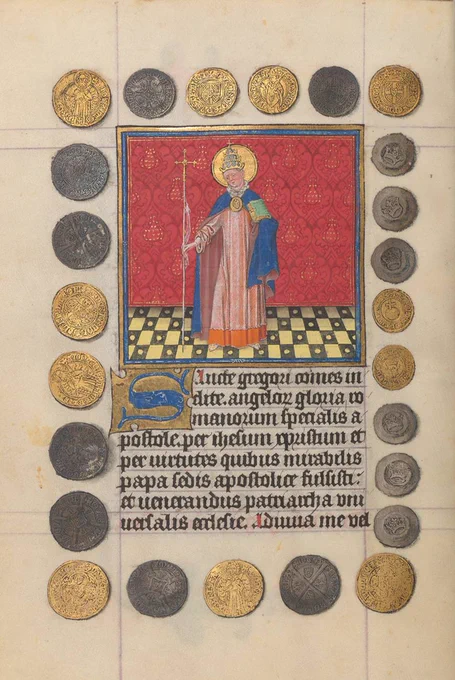 Sancte gregori comes in
clite. angeloꝝ gloria ro
manorum specialis a
postole. per ihesum xpristum et
per uirtutes quibus mirabilis
papa sedis apostolice fulsisti:
et uenerandus patriarcha vni
uersalis ecclesie. Adiuua me vel